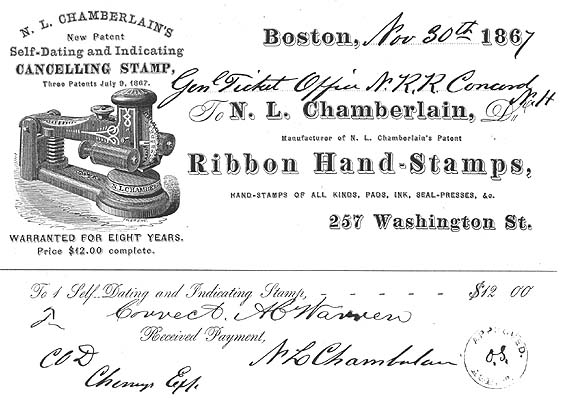 N. L. CHAMBERLAIN'S
New Patent
Self-Dating and Indicating
CANCELLING STAMP,
Three Patents July 9, 1867.
N. L. CHAMBER
WARRANTED FOR EIGHT YEARS.
Price $12.00 complete.
Boston, Nov 30th 1867
Genl Ticket Office N. R. R. Concord
N.H
To N. L. Chamberlain, Dr.
Manufacturer of N. L. Chamberlain's Patent
Ribbon Hand-Stamps,
HAND-STAMPS OF ALL KINDS, PADS, INK, SEAL-PRESSES, &c.
257 Washington St.
To 1 Self-Dating and Indicating Stamp, - - - - - $12 00
Correct. A C Warren
Received Payment,
COD
N L Chamberlain
Cheneys Exp.
APPROVED.
O.S.